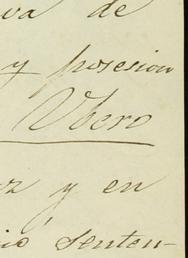 va de
y posesion
Ubero
oz y en
ió senten-